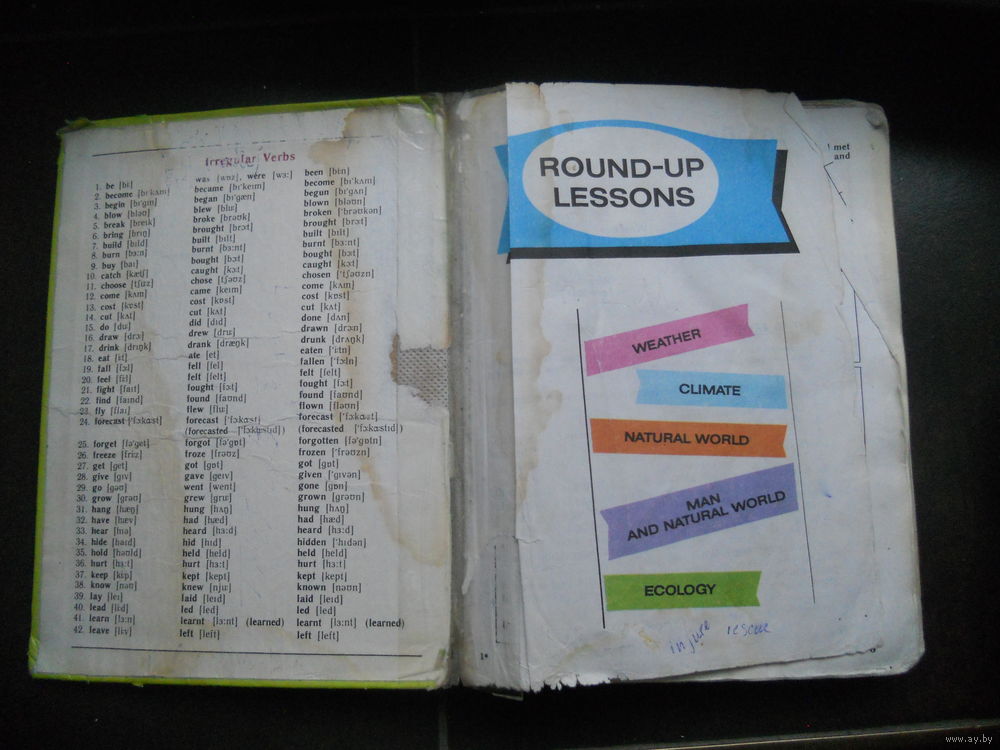 Irregular Verbs
1. be [bɪ:] was [wɒz], were [wɜ:] been [bi:n]
2. become [bɪ'kʌm] became [bɪ'keɪm] become [bɪ'kʌm]
3. begin [bɪ'gɪn] began [bɪ'gæn] begun [bɪ'gʌn]
4. blow [bləʊ] blew [blu:] blown [bləʊn]
5. break [breɪk] broke [brəʊk] broken ['brəʊkən]
6. bring [brɪŋ] brought [brɔ:t] brought [brɔ:t]
7. build [bɪld] built [bɪlt] built [bɪlt]
8. burn [bɜ:n] burnt [bɜ:nt] burnt [bɜ:nt]
9. buy [baɪ] bought [bɔ:t] bought [bɔ:t]
10. catch [kætʃ] caught [kɔ:t] caught [kɔ:t]
11. choose [tʃu:z] chose [tʃəʊz] chosen ['tʃəʊzn]
12. come [kʌm] came [keɪm] come [kʌm]
13. cost [kɒst] cost [kɒst] cost [kɒst]
14. cut [kʌt] cut [kʌt] cut [kʌt]
15. do [du:] did [dɪd] done [dʌn]
16. draw [drɔ:] drew [dru:] drawn [drɔ:n]
17. drink [drɪŋk] drank [dræŋk] drunk [drʌŋk]
18. eat [i:t] ate [et] eaten ['i:tn]
19. fall [fɔ:l] fell [fel] fallen ['fɔ:ln]
20. feel [fi:l] felt [felt] felt [felt]
21. fight [faɪt] fought [fɔ:t] fought [fɔ:t]
22. find [faɪnd] found [faʊnd] found [faʊnd]
23. fly [flaɪ] flew [flu:] flown [fləʊn]
24. forecast ['fɔ:kɑ:st] forecast ['fɔ:kɑ:st] forecast ['fɔ:kɑ:st]
(forecasted ['fɔ:kɑ:stɪd]) (forecasted ['fɔ:kɑ:stɪd])
25. forget [fə'get] forgot [fə'gɒt] forgotten [fə'gɒtn]
26. freeze [fri:z] froze [frəʊz] frozen ['frəʊzn]
27. get [get] got [gɒt] got [gɒt]
28. give [gɪv] gave [geɪv] given ['gɪvən]
29. go [gəʊ] went [went] gone [gɒn]
30. grow [grəʊ] grew [gru:] grown [grəʊn]
31. hang [hæŋ] hung [hʌŋ] hung [hʌŋ]
32. have [hæv] had [hæd] had [hæd]
33. hear [hɪə] heard [hɜ:d] heard [hɜ:d]
34. hide [haɪd] hid [hɪd] hidden ['hɪdən]
35. hold [həʊld] held [held] held [held]
36. hurt [hɜ:t] hurt [hɜ:t] hurt [hɜ:t]
37. keep [ki:p] kept [kept] kept [kept]
38. know [nəʊ] knew [nju:] known [nəʊn]
39. lay [leɪ] laid [leɪd] laid [leɪd]
40. lead [li:d] led [led] led [led]
41. learn [lɜ:n] learnt [lɜ:nt] (learned) learnt [lɜ:nt] (learned)
42. leave [li:v] left [left] left [left]
ROUND-UP
LESSONS
WEATHER
CLIMATE
NATURAL WORLD
MAN
AND NATURAL WORLD
ECOLOGY
injure rescue
1*
met
and
www.ay.by